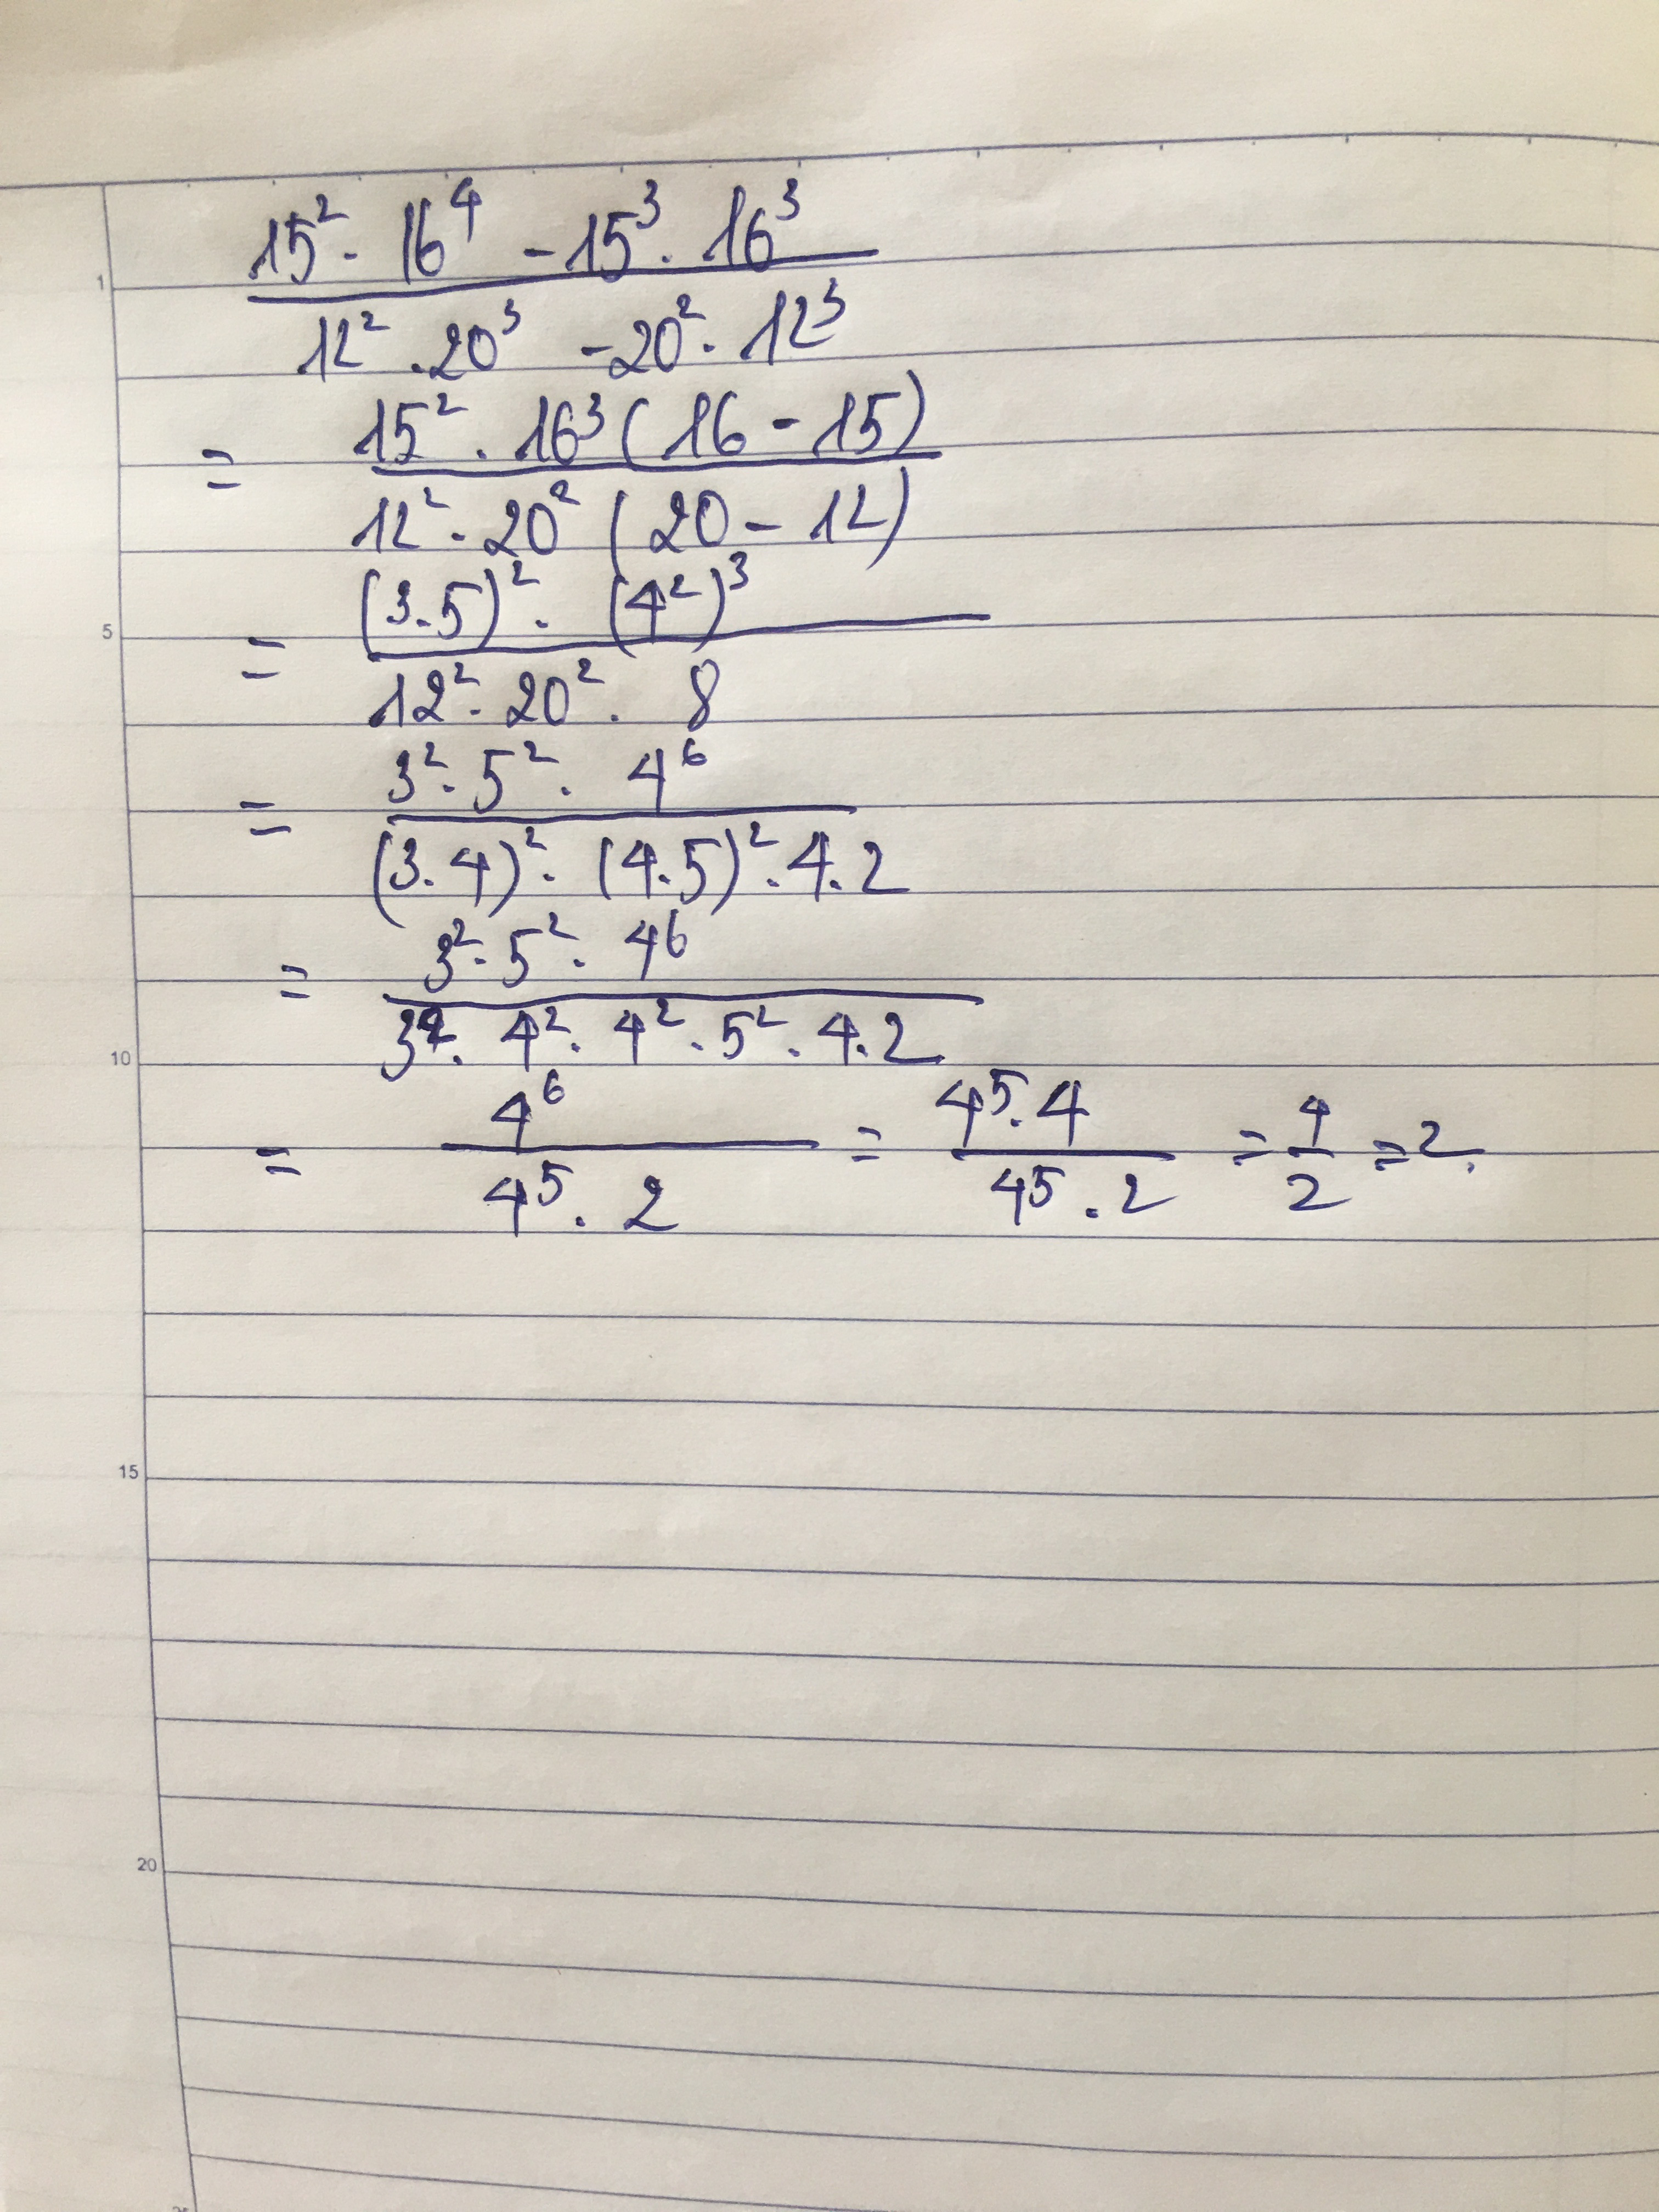 15² . 16⁴ - 15³ . 16³
1
12² . 20³ - 20² . 12³
15² . 16³ ( 16 - 15)
=
12² . 20² ( 20 - 12)
(3.5)² . (4²)³
5
=
12² . 20² . 8
3² . 5² . 4⁶
=
(3.4)² . (4.5)² . 4 . 2
3² . 5² . 4⁶
=
3² . 4² . 4² . 5² . 4 . 2
10
4⁶ 4⁵ . 4 4
= = = = 2.
4⁵ . 2 4⁵ . 2 2
15
20